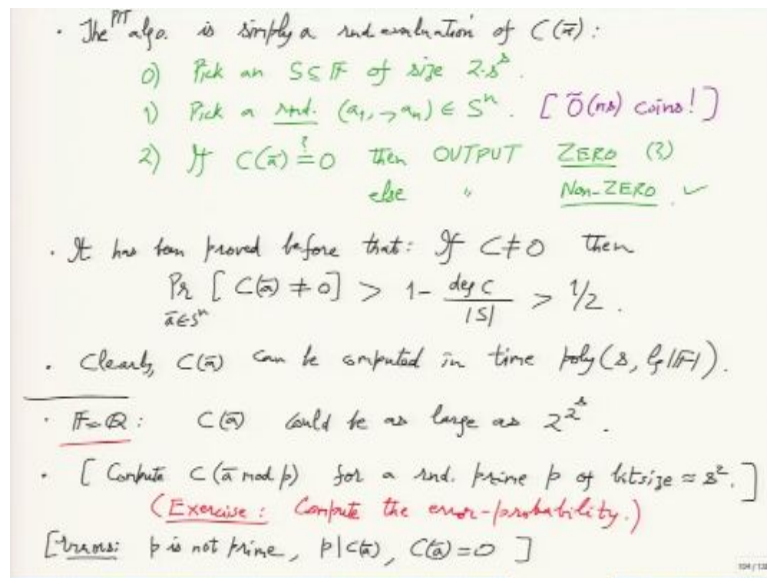 · The PIT algo. is simply a rnd evaluation of C(x̄):
0) Pick an S⊆F of size 2·s^s.
1) Pick a rnd. (a₁,→aₙ) ∈ Sⁿ. [Õ(ns) coins!]
2) If C(ā) ≟ 0 then OUTPUT ZERO (?)
else " Non-ZERO ✓
· It has been proved before that: If C≠0 then
Pr [C(ā) ≠ 0] > 1 - deg C / |S| > 1/2.
ā∈Sⁿ
· Clearly, C(ā) can be computed in time poly(s, lg|F|).
· F=Q: C(ā) could be as large as 2^2^s.
· [Compute C(ā mod p) for a rnd. prime p of bitsize ≈ s².]
(Exercise: Compute the error-probability.)
[Errors: p is not prime, p|C(ā), C(ā)=0]